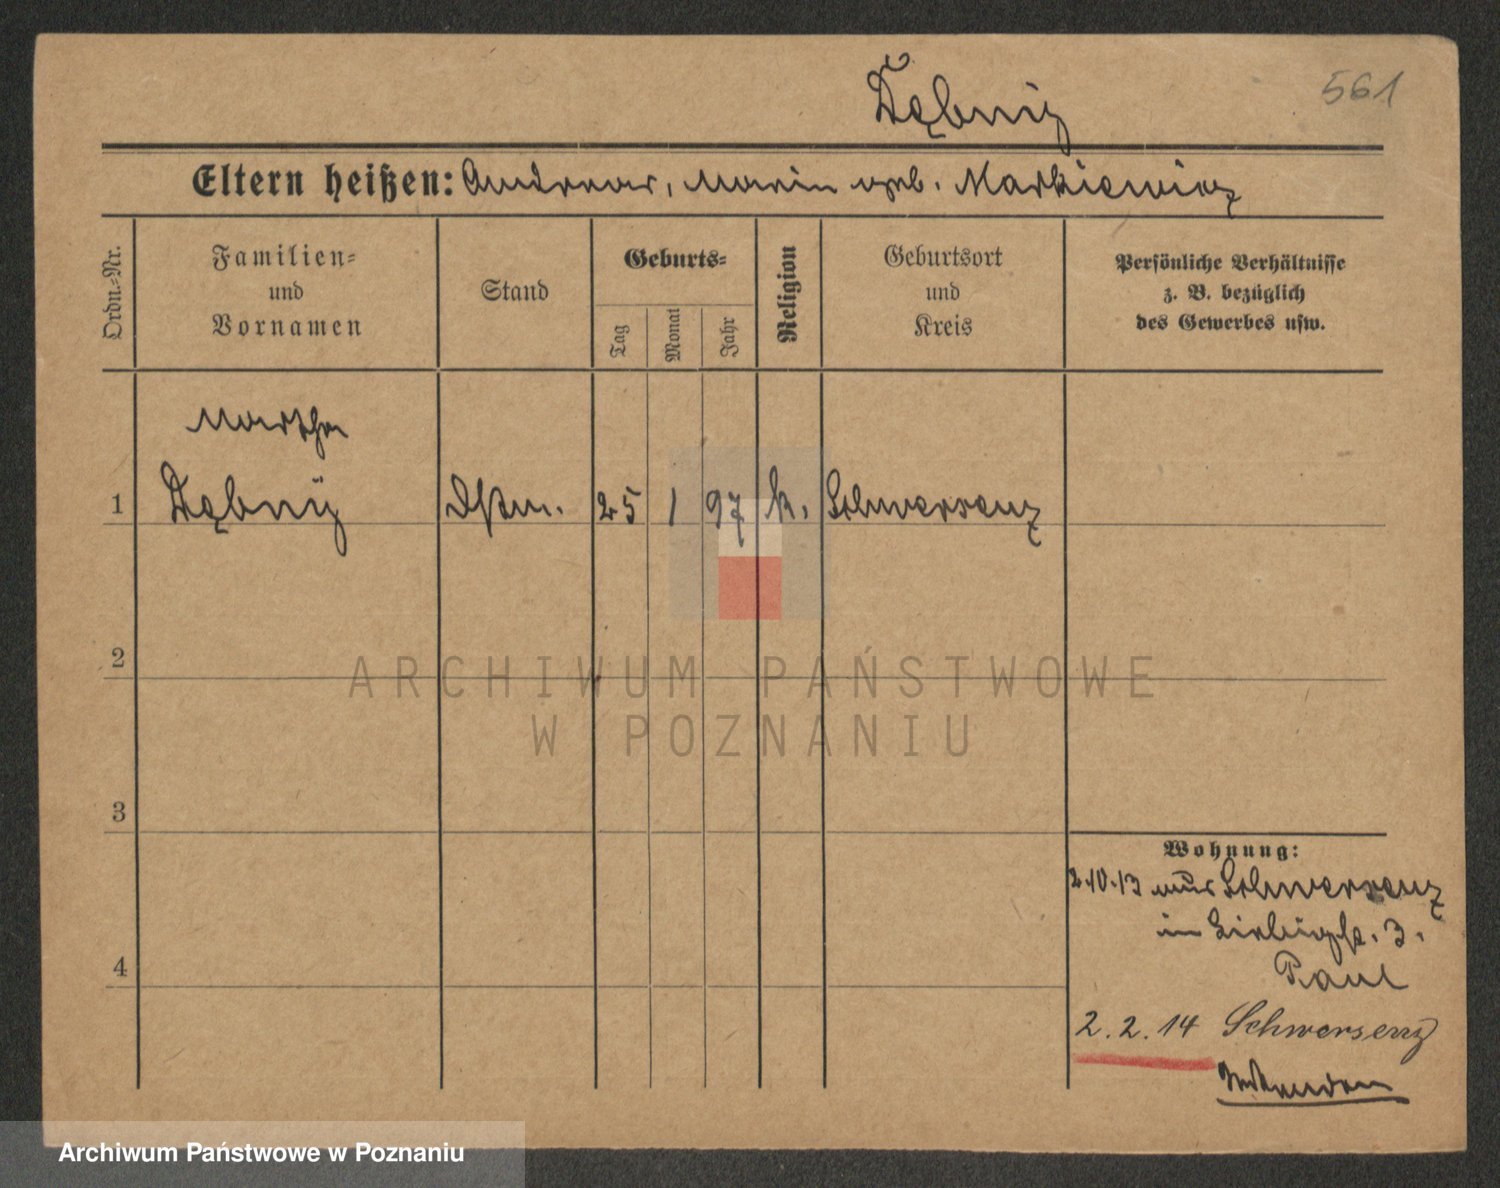 561
Dębniÿ
Eltern heißen: Andreas, Maria geb. Markiewicz
Ordn.-Nr.
Familien-
und
Vornamen
Stand
Geburts-
Tag
Monat
Jahr
Religion
Geburtsort
und
Kreis
Persönliche Verhältnisse
z. B. bezüglich
des Gewerbes usw.
Martha
1 Dębniÿ 25 1 97 k. Schwersenz
2
3
4
Wohnung:
2.10.13 aus Schwersenz
in 3.
Paul
2.2.14 Schwersenz
ARCHIWUM PAŃSTWOWE
W POZNANIU
Archiwum Państwowe w Poznaniu